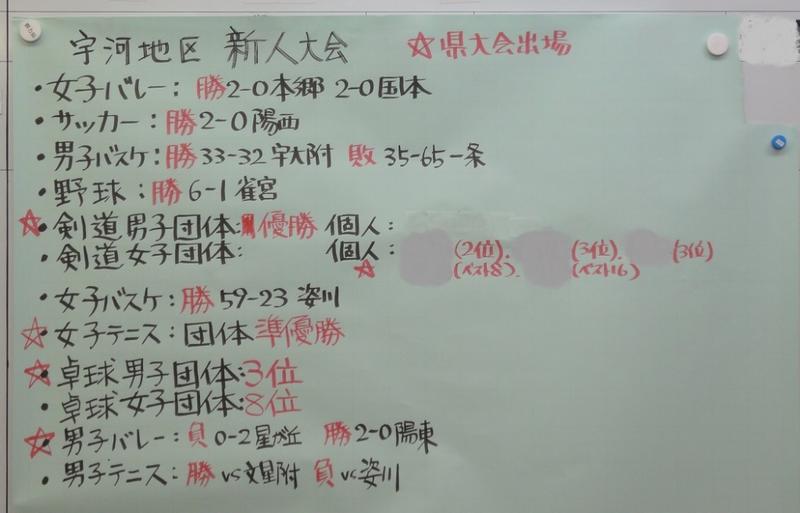 宇河地区 新人大会 ☆県大会出場
・女子バレー：勝2-0本郷 2-0国本
・サッカー：勝2-0陽西
・男子バスケ：勝33-32宇大附 敗35-65一条
・野球：勝6-1雀宮
☆・剣道男子団体：優勝 個人：
・剣道女子団体： 個人： (2位). (3位). (3位)
☆ (ベスト8). (ベスト16)
・女子バスケ：勝59-23姿川
☆・女子テニス：団体準優勝
☆・卓球男子団体：3位
・卓球女子団体：8位
☆・男子バレー：負0-2星が丘 勝2-0陽東
・男子テニス：勝vs文星附 負vs姿川